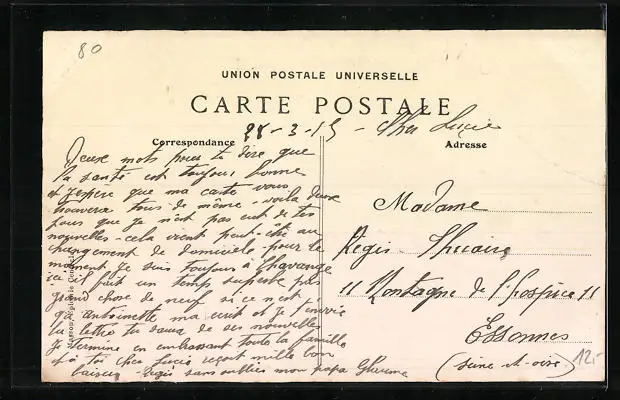 80
UNION POSTALE UNIVERSELLE
CARTE POSTALE
Correspondance
Adresse
28-3-15 - Cher Lucie
Deux mots pour te dire que
la santé est toujours bonne
et j'espère que ma carte vous
trouvera tous de même - voilà deux
jours que je n'ai pas eut de tes
nouvelles - cela vient peut-être au
changement de domicile - pour le
moment je suis toujours à Chavange
ici il fait un temps superbe pas
grand chose de neuf si ce n'est
qu'antoinette ma écrit et je t'envoie
la lettre tu saura de ses nouvelles
Je termine en embrassant toute la famille
et à toi cher Lucie reçoit mille bon
baiser - Régis sans oublier mon papa
Madame
Régis
11 Montagne de l'hospice 11
Essonnes
(Seine et oise)
12.-